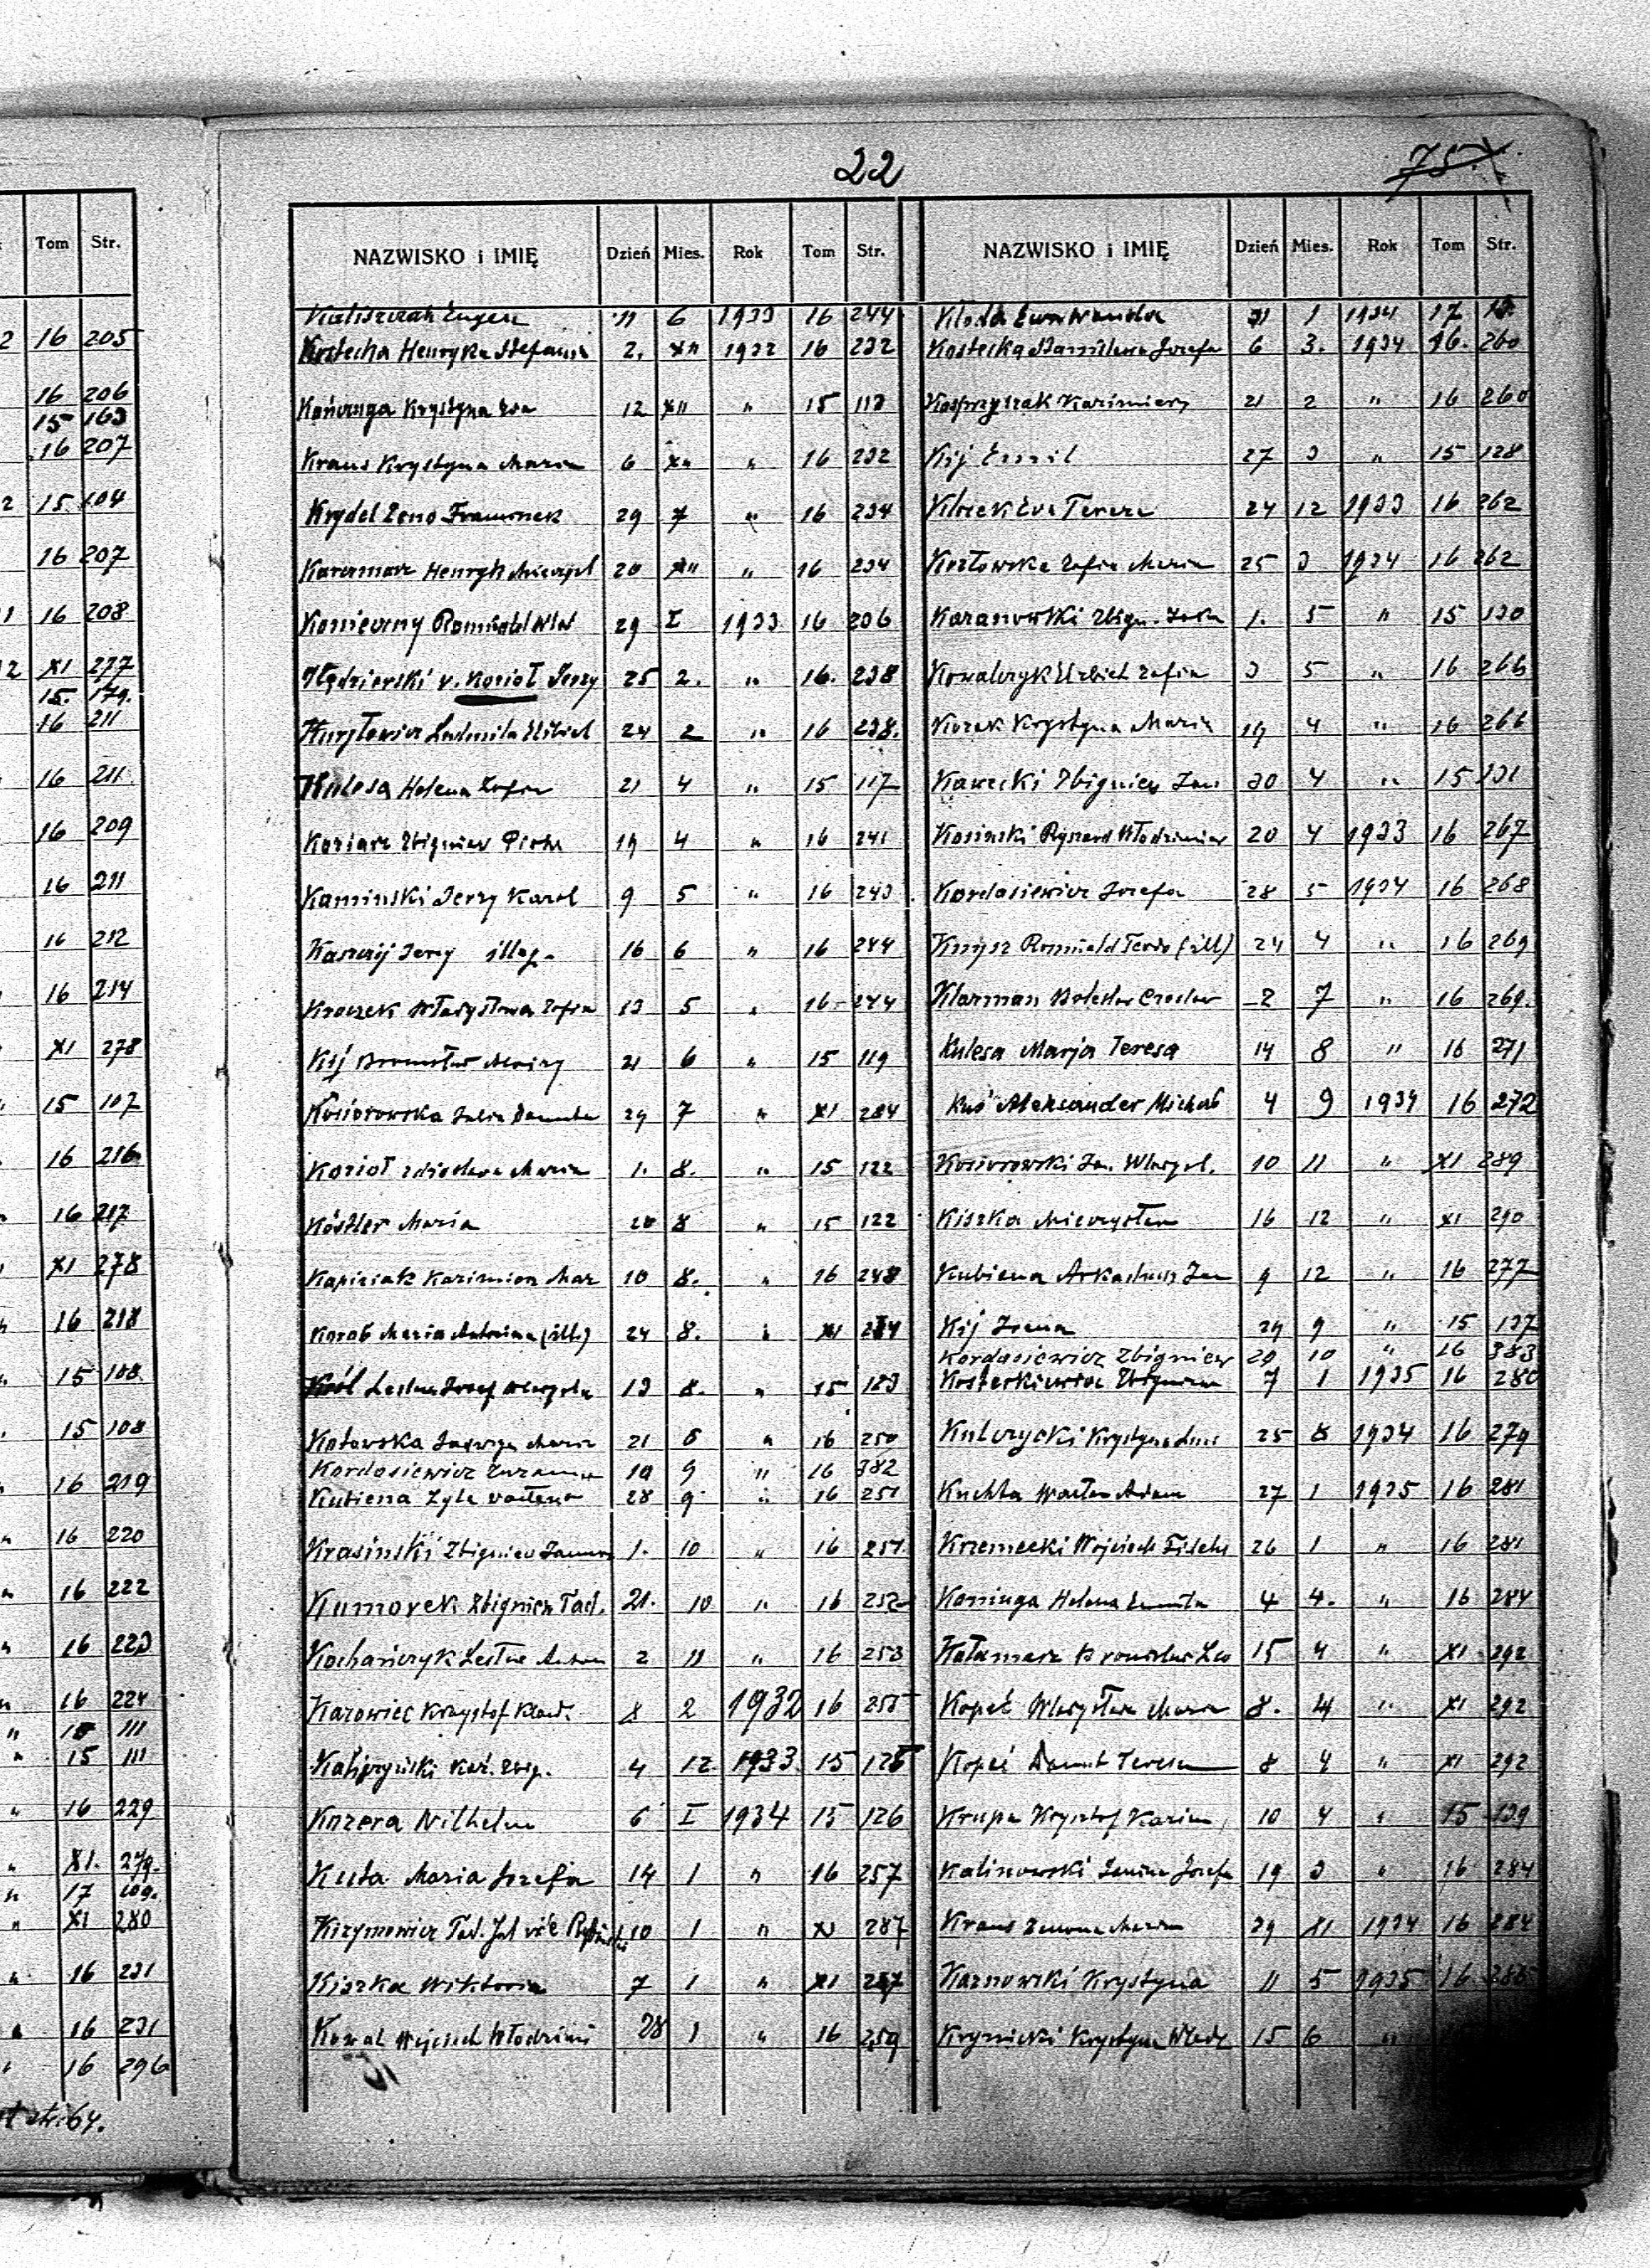 22
75.
Tom Str.
16 205
16 206
15 163
16 207
15 104
16 207
16 208
XI 277
15. 179.
16 211
16 211
16 209
16 211
16 212
16 214
XI 278
15 107
16 216
16 217
XI 278
16 218
15 108
15 108
16 219
16 220
16 222
16 223
16 224
15 111
15 111
16 229
XI. 279.
17 209.
XI 280
16 231
16 231
16 296
str. 64.
NAZWISKO i IMIĘ Dzień Mies. Rok Tom Str.
Kaliszczak Eugen 11 6 1933 16 244
Kostecka Henryka Stefania 2. XII 1932 16 232
Kańczuga Krystyna Ewa 12 XII " 15 113
Kraus Krystyna Maria 6 XII " 16 232
Krydel Zeno Franciszek 29 7 " 16 234
Karczmarz Henryk Mieczysł 20 XII " 16 234
Konieczny Romuald Wład 29 I 1933 16 236
Kędzierski v. Kozioł Jerzy 25 2. " 16. 238
Kuryłowicz Ludmiła Elżbiet 24 2 " 16 238.
Kulesa Helena Zofia 21 4 " 15 117
Koziarz Zbigniew Piotr 19 4 " 16 241
Kaminski Jerzy Karol 9 5 " 16 243
Kaszczij Jerzy illeg. 16 6 " 16 244
Kroczek Władysława Zofia 13 5 " 16 244
Kij Bronisław 21 6 " 15 119
Kosiorowska Julia Danuta 29 7 " XI 284
Kozioł Zdzisława Maria 1. 8. " 15 122
Köstler Maria 20 8 " 15 122
Kapiciak Kazimierz Mar 10 8. " 16 248
Korab Maria Antonina (ill.) 24 8. " XI 284
Król Lesław Józef 13 8. " 15 123
Kotowska Jadwiga Maria 21 8 " 16 250
Kordasiewicz Zuzanna 10 9 " 16 382
Kubiena Zyta 28 9 " 16 251
Krasiński Zbigniew Janusz 1. 10 " 16 251
Kumorek Zbigniew Tad. 21. 10 " 16 252
Kochańczyk Lesław Anton 2 11 " 16 253
Karowiec Krzysztof 8 2 1932 16 255
Kaź. Zbig. 4 12 1933 15 125
Kozera Wilhelm 6 I 1934 15 126
Kuta Maria Józefa 14 1 " 16 257
Kirzymowicz Tad. Jul 10 1 " XI 287
Kiszka Wiktoria 7 1 " XI 287
Kowal Wojciech Włodzimi 28 1 " 16 259
NAZWISKO i IMIĘ Dzień Mies. Rok Tom Str.
Kłoda Ewa Wanda 31 1 1934 17
Kostecka Stanisława Józefa 6 3. 1934 16. 260
Kasprzyszak Kazimierz 21 2 " 16 260
Kij Emil 27 3 " 15 128
Klocek Ewa Teresa 24 12 1933 16 262
Kozłowska Zofia Maria 25 3 1934 16 262
Karanowski Zbign. 1. 5 " 15 130
Kowalczyk Elżbiet Zofia 3 5 " 16 266
Kozak Krystyna Maria 19 4 " 16 266
Kawecki Zbigniew Jan 30 4 " 15 131
Kosinski Ryszard Włodzimierz 20 4 1933 16 267
Kordasiewicz Józefa 28 5 1934 16 268
Knysz Romuald (ill) 24 4 " 16 269
Klarman Bolesław Czesław 2 7 " 16 269.
Kulesa Marja Teresa 14 8 " 16 271
Kuś Aleksander Michał 4 9 1934 16 272
Kosiorowski Jan 10 11 " XI 289
Kiszka Mieczysław 16 12 " XI 290
Kubiena Arkadiusz Jan 9 12 " 16 277
Kij Irena 29 9 " 15 137
Kordasiewicz Zbigniew 20 10 " 16 383
Kosterkiewicz Zbigniew 7 1 1935 16 280
Kulczycki Krystyna 25 8 1934 16 279
Kuchta Wacław Adam 27 1 1935 16 281
Krzemecki Wojciech 26 1 " 16 281
Koniuga Helena 4 4. " 16 284
Kałamarz Bronisław Leo 15 4 " XI 292
Kopeć Władysława Maria 8. 4 " XI 292
Kopeć Danut Teresa 8 4 " XI 292
Krupa Krysztof Kazim 10 4 " 15 139
Kalinowski Janina Józefa 19 3 " 16 284
Kraus Maria 29 XI 1934 16 284
Karnowski Krystyna 11 5 1935 16 286
Krynicki Krystyna Wład 15 6 "